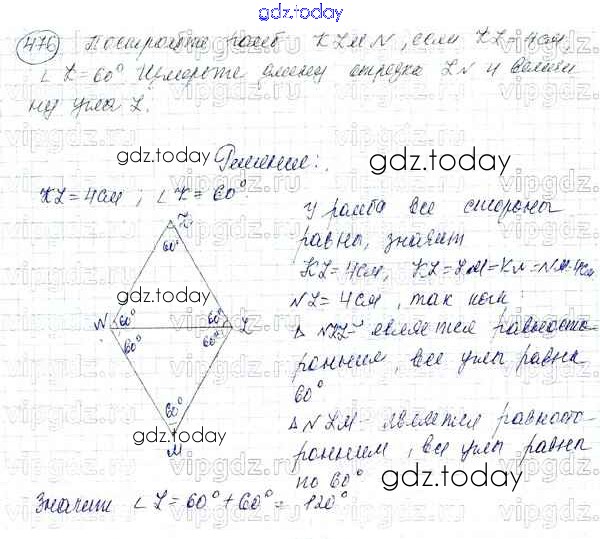 gdz.today
476 Постройте ромб KLMN, если KL=4см,
∠K=60° Измерьте длину отрезка LN и величи
ну угла L.
gdz.today
Решение:
gdz.today
KL=4см; ∠K=60°.
У ромба все стороны
равны, значит
KL=4см, KL=LM=KN=NM=4см
NL=4см, так как
△ NKL- является равносто-
ронним, все углы равны
60°
△ NLM- является равносто-
ронним, все углы равны
по 60°
K
60°
gdz.today
N 60° 60° L
60° 60°
60°
gdz.today
M
gdz.today
gdz.today
Значит ∠L=60°+60°= 120°